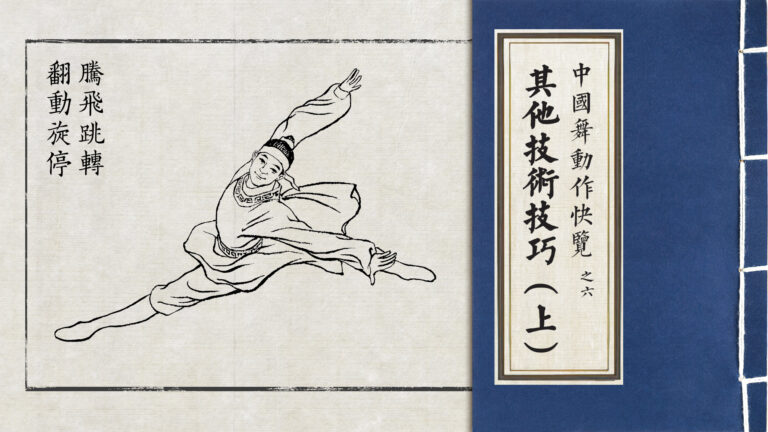 騰飛跳轉
翻動旋停
中國舞動作快覽之六
其他技術技巧（上）